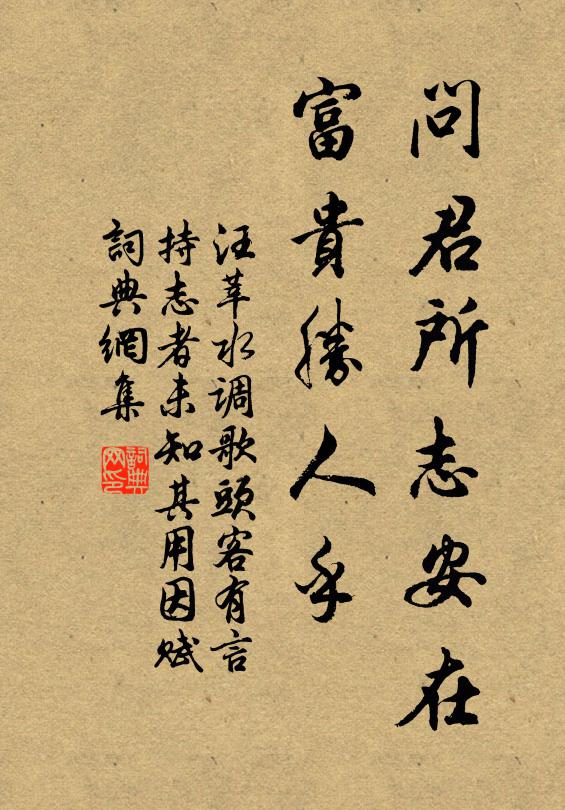 問君所志安在
富貴勝人乎
汪莘水调歌頭客有言
持志者未知其用因赋
詞典網集
詞典网印